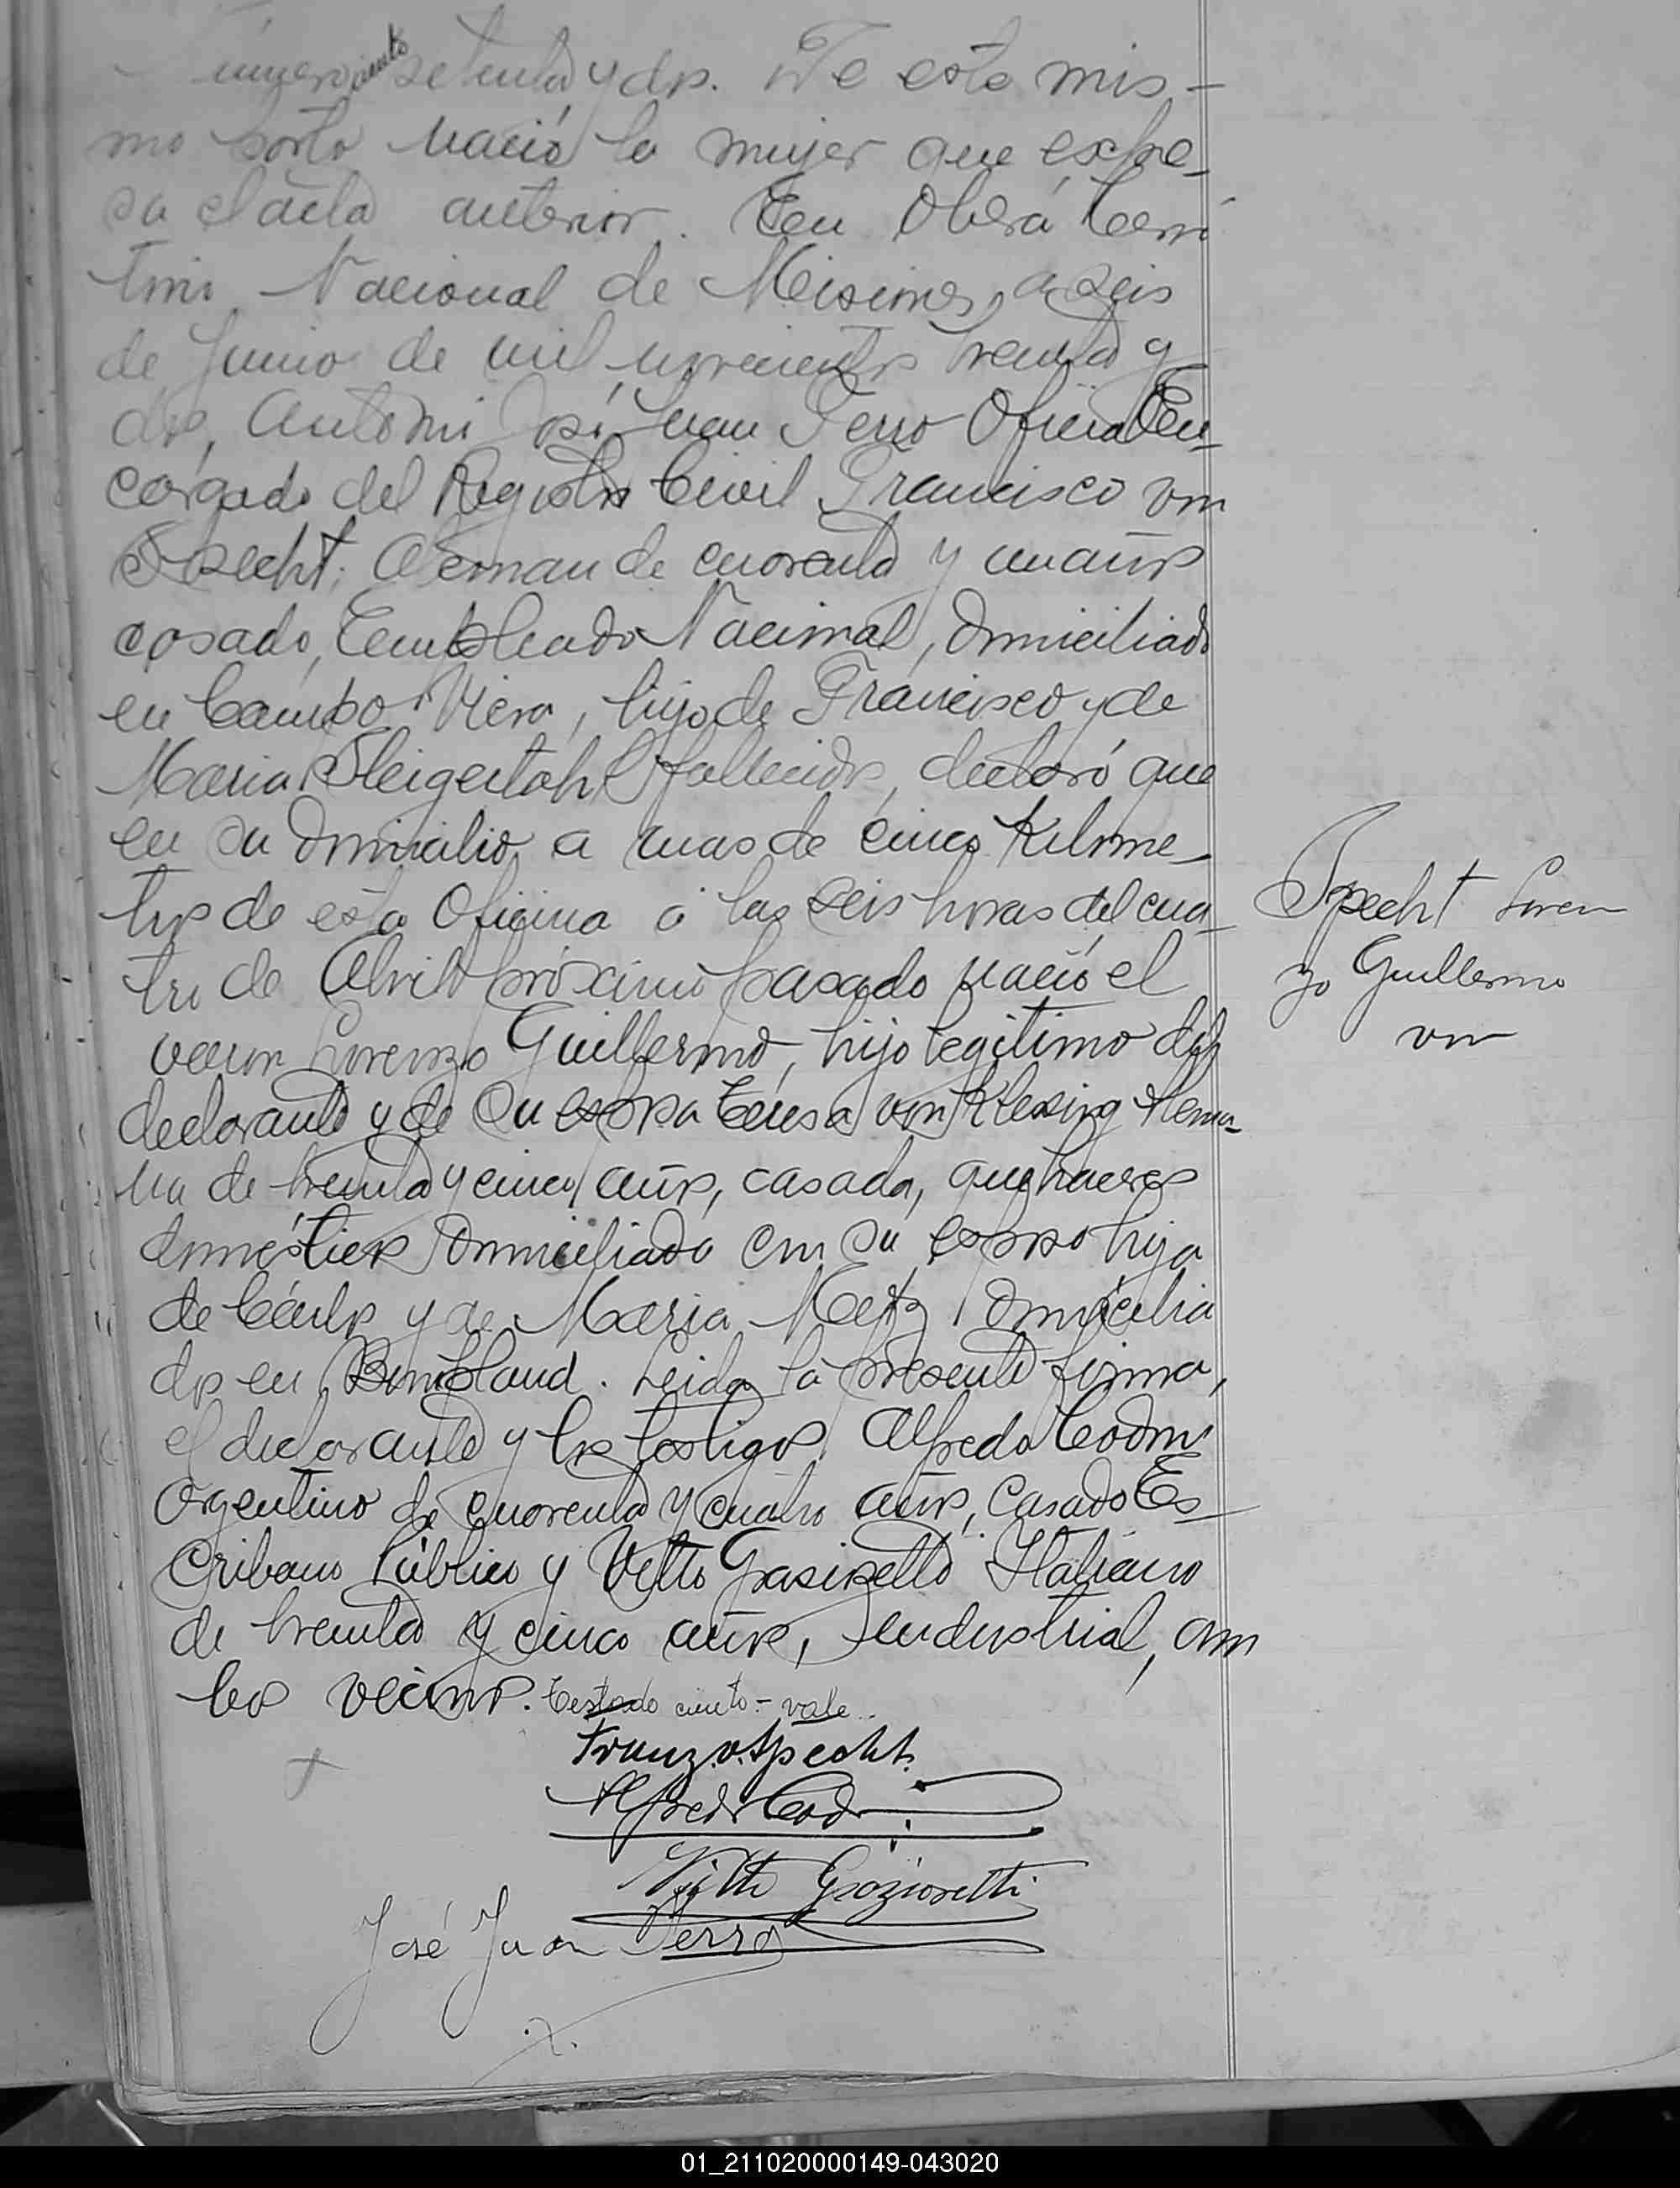 Número ciento setenta y dos. De este mis-
mo parto nació la mujer que expre-
sa el acta anterior. En Oberá Terri
torio Nacional de Misiones, a seis
de Junio de mil novecientos treinta y
dos, ante mi José Juan Ferro Oficial En-
cargado del Registro Civil Francisco von
Specht, Aleman de cuarenta y un años
casado, Empleado Nacional, domiciliado
en Campo Viera, hijo de Francisco y de
Maria fallecidos, declaró que
en su domicilio, a mas de cinco Kilome-
tros de esta Oficina á las seis horas del cua-
tro de Abril próximo pasado nació el
varon Lorenzo Guillermo, hijo legitimo del
declarante y de su esposa Teresa von Alema-
na de treinta y cinco años, casada, quehaceres
domésticos domiciliada con su esposo hija
de Carlos y de Maria domicilia
dos en. Leida la presente firma,
el declarante y los testigos Alfredo
Argentino de cuarenta y cuatro años, Casado Es-
cribano Público y Vitto Italiano
de treinta y cinco años, Industrial, am
bos vecinos. Testado ciento - vale.
Specht Loren
zo Guillermo
von
Franz v. Specht.
Alfredo
Vitto Grazioretti
José Juan Ferro
01_211020000149-043020